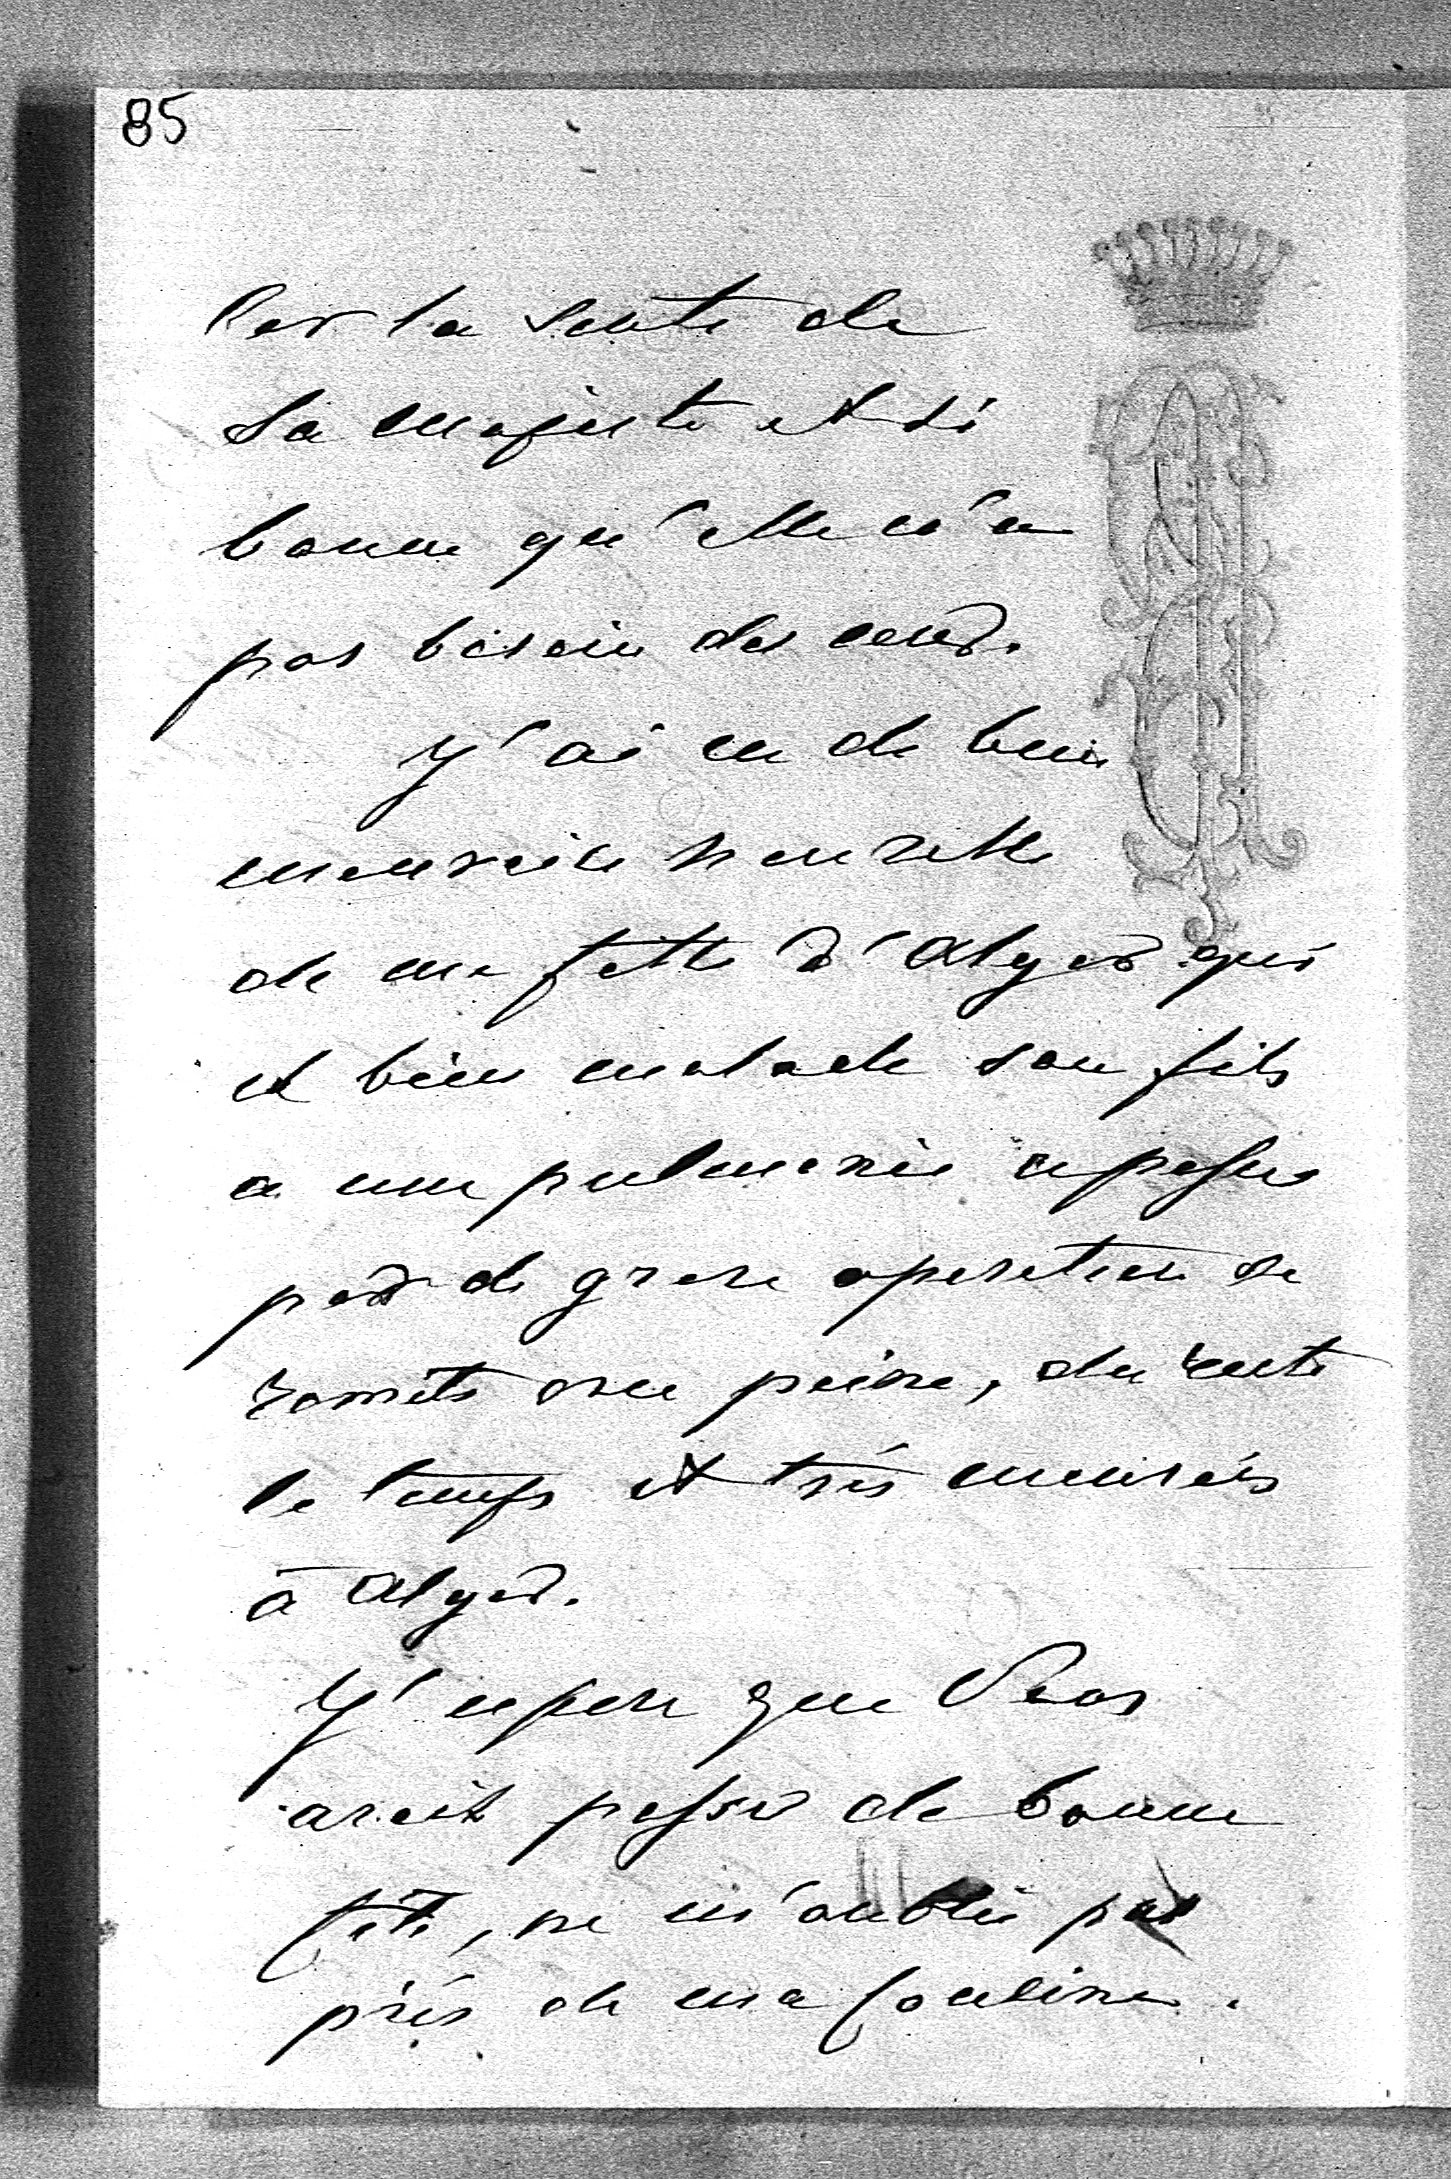 85
Car la sante de
Sa Majeste est si
bonne qu'elle n'a
pas besoin des
J'ai eu de bien
mauvaise nouvelle
de ma fille d'Alger qui
est bien malade son fils
a une pulmonie a passue
par de grave operation se
remets avec peine, du reste
le temps est très mauvais
à Alger.
J'espere que Vous
avait passer de bonne
fête, ne m'oublie pas
près de ma Cousine.